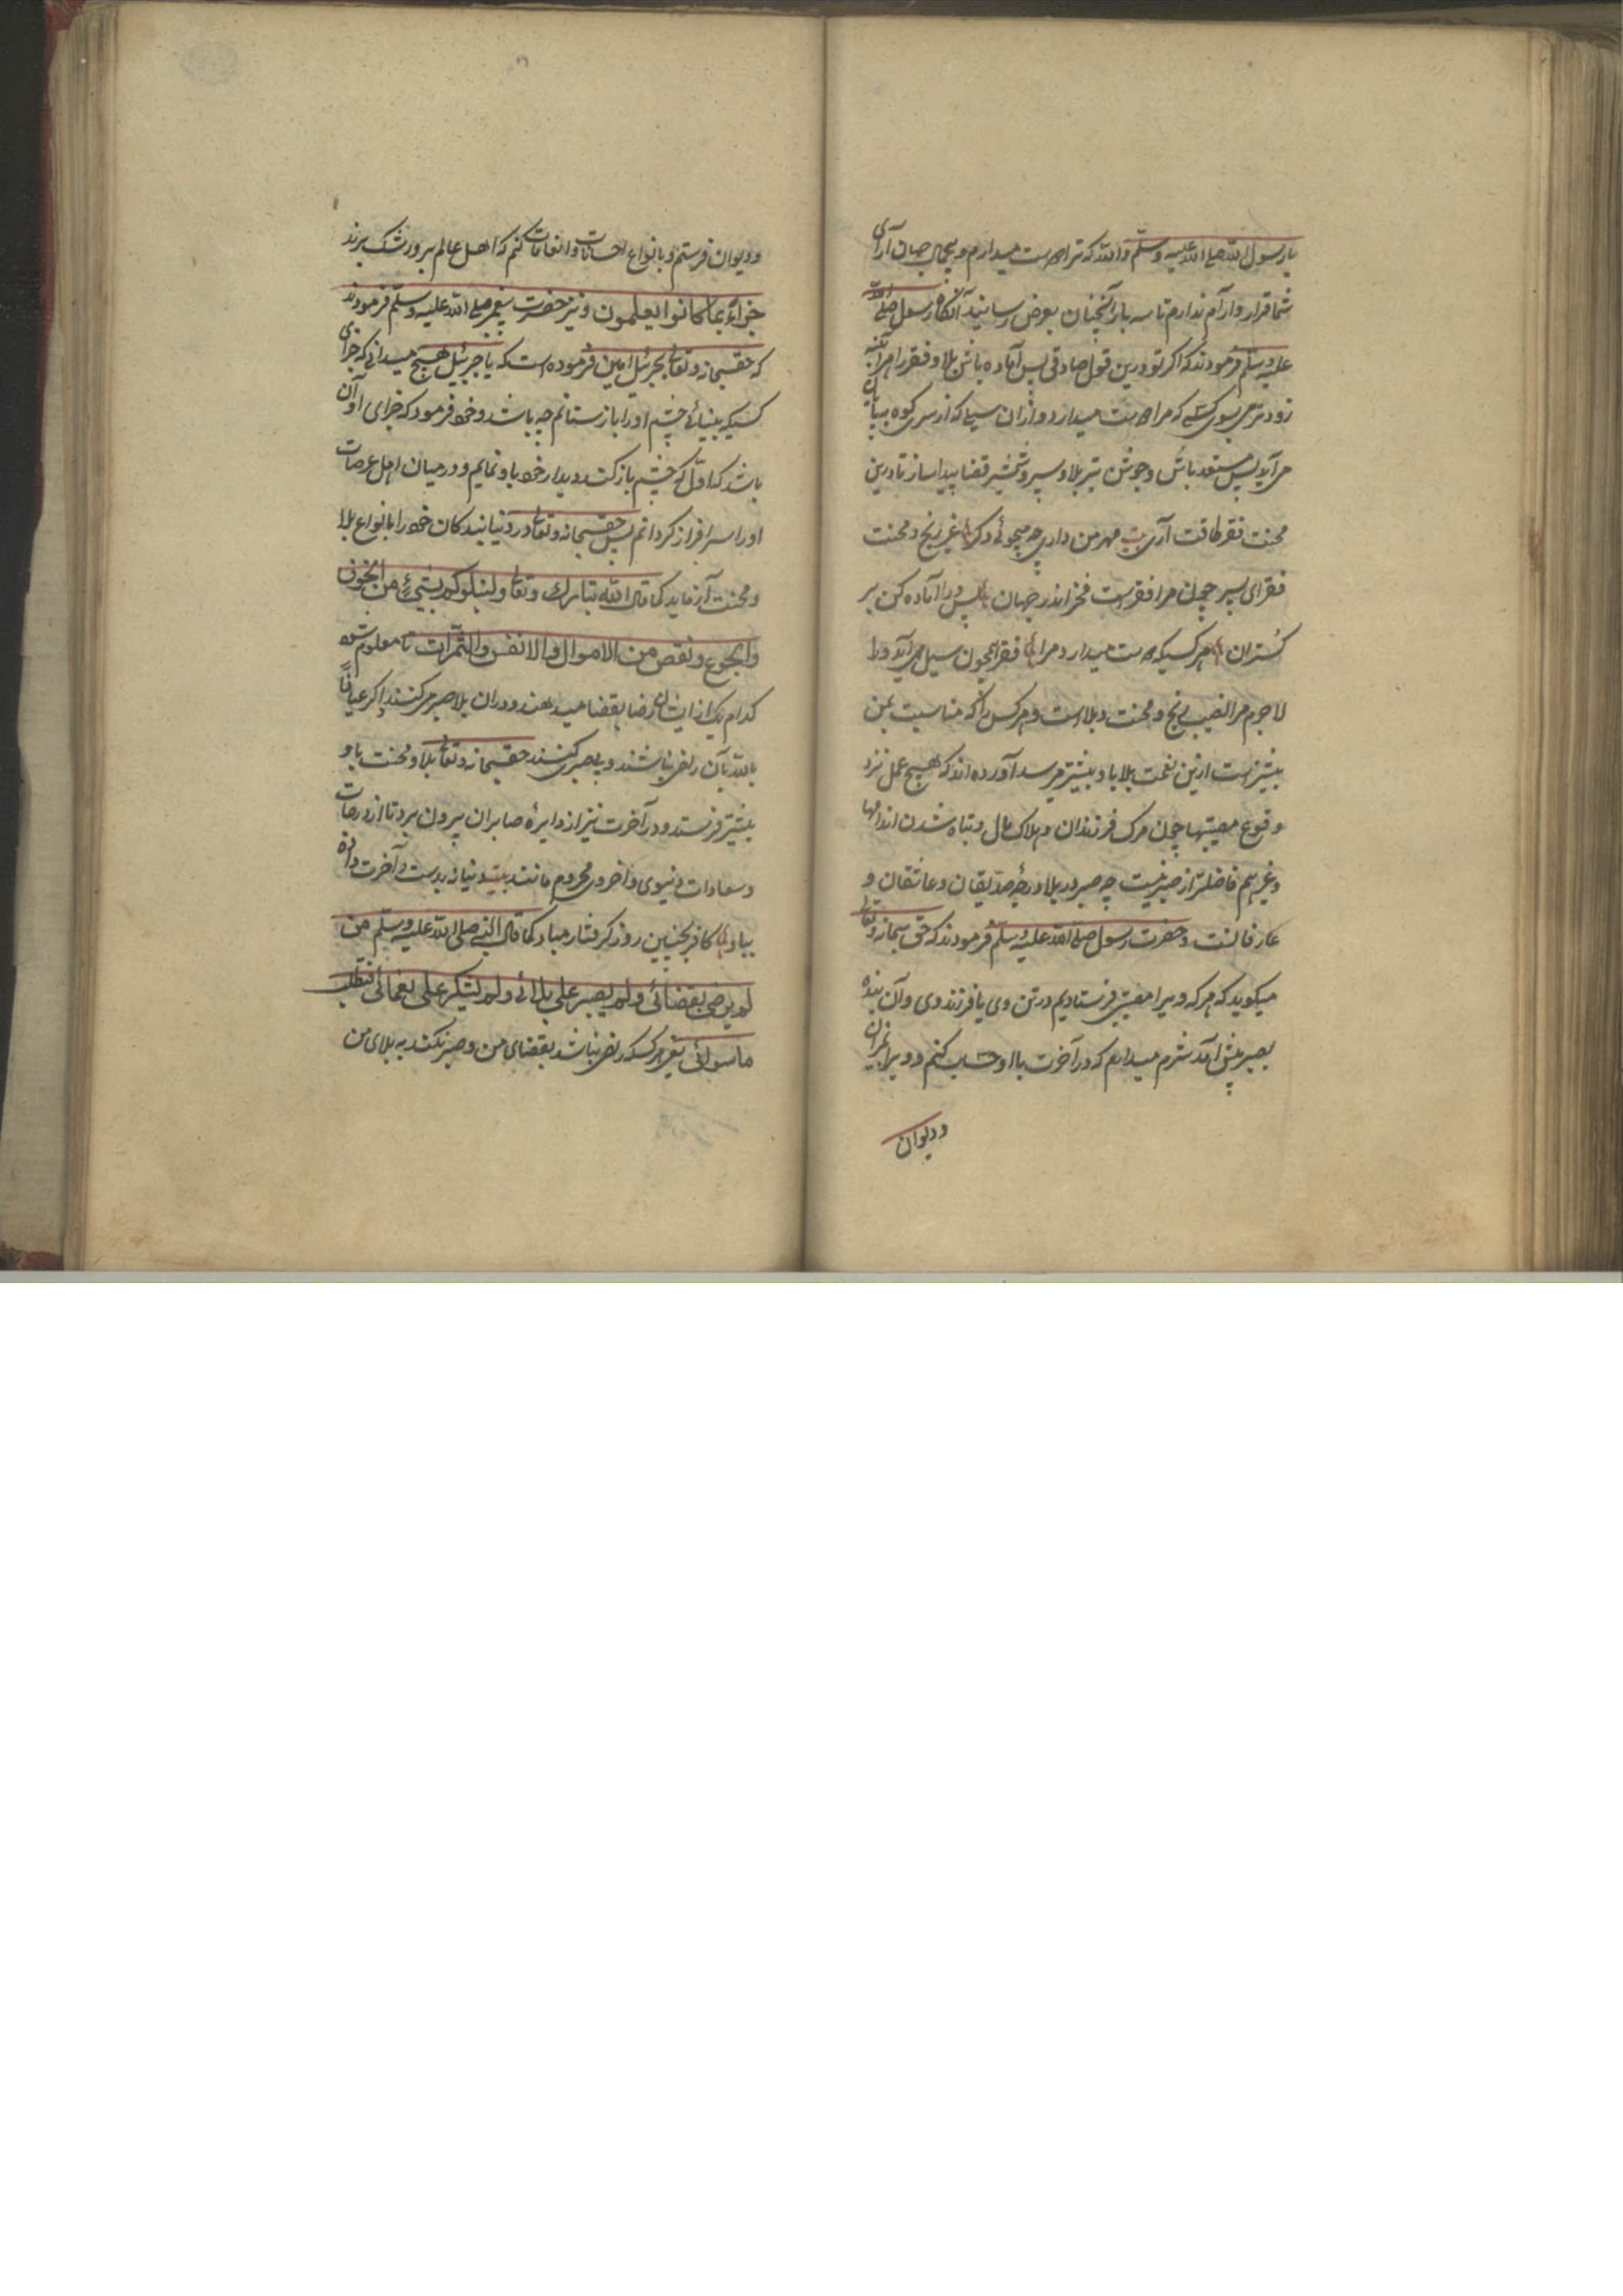 یا رسول الله صلی الله علیه وسلم والله که ترا دوست میدارم و بیجمال جهان آرای
شما قرار و آرام ندارم تا سه بار آنچنان بعرض رسانید آنگاه رسول صلی الله
علیه وسلم فرمودند که اگر تو درین قول صادقی پس آماده باش بلا و فقر را هر آئینه
زودتر می بسوی کسی که مرا دوست میدارد و از آن سیل که از سر کوه بپایان
می آید پس مستعد باش و جوشن تیر بلا و سپر شمشیر قضا پیدا ساز تا درین
محنت فقر طاقت آری بیت مهر من داری چه میجوئی دگر غیر رنج و محنت
فقر ای پسر چون مرا فقرست فخر اندر جهان پس تو را آماده کن بر
کستران هر کسیکه دوست میدارد مرا فقر همچون سیل می آید ورا
لاجرم مرا نصیب رنج و محنت و بلاست و هر کس را که مناسبت بمن
بیشترست ازین نعمت بلا باو بیشتر میرسد آورده اند که هیچ عمل نزد
وقوع مصیبتها چون مرگ فرزندان و هلاک مال و تباه شدن اندامها
و غیر هم فاضلتر از صبر نیست چه صبر در بلا درجه صدیقان و عاشقان و
عارفانست و حضرت رسول صلی الله علیه وسلم فرمودند که حق سبحانه وتعالی
میگوید که هر که ویرا مصیبتی فرستادیم در تن وی یا فرزند وی و آن بنده
بصبر پیش آمد شرم میدارم که در آخرت با او حساب کنم و ویرا بمیزان
و دیوان
و دیوان فرستم و بانواع احسانات و انعامات کنم که اهل عالم برو رشک برند
جزاء بما کانوا یعلمون و نیز حضرت پیغمبر صلی الله علیه وسلم فرمودند
که حقسبحانه وتعالی بجبرئیل امین فرموده است که یا جبرئیل هیچ میدانی که جزای
کسیکه بینائے چشم او را باز ستانم چه باشد و خود فرمود که جزای او آن
باشد که اول که چشم باز کند دیدار خود باو نمایم و در میان اهل عرصات
او را سرافراز گردانم پس حقسبحانه وتعالی در دنیا بندکان خود را بانواع بلا
و محنت آزماید کما قال الله تبارك وتعالی ولنبلونکم بشیء من الخوف
والجوع ونقص من الاموال والانفس والثمرات تا معلوم شود
کدام یک ازایشان رضا بقضا میدهند و در آن بلا صبر میکنند اگر عیاذاً
بالله بآن راضی نباشند و بیصبری کنند حقسبحانه وتعالی بلا و محنت باو
بیشتر فرستد و در آخرت نیز از دایره صابران بیرون برد تا از درجات
و سعادات دنیوی و اخروی محروم مانند بیت دنیا نه بدست و آخرت داده
بباد کافر بچنین روز گرفتار مباد کما قال النبی صلی الله علیه وسلم من
لم یرض بقضائی ولم یصبر علی بلائی ولم یشکر علی نعمائی فیطلب
ما سوائی یعنی هر کسکه راضی نباشد بقضای من و صبر نکند به بلای من